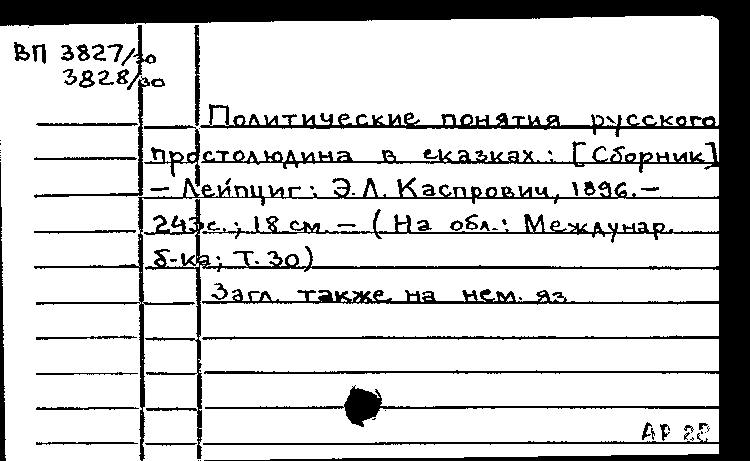 ВП 3827/30
3828/30
Политические понятия русского
простолюдина в сказках.: [Сборник]
— Лейпциг: Э.Л. Каспрович, 1896.—
243с.; 18 см. — ( На обл.: Междунар.
б-ка; Т. 30)
Загл. также на нем. яз.
АР 28